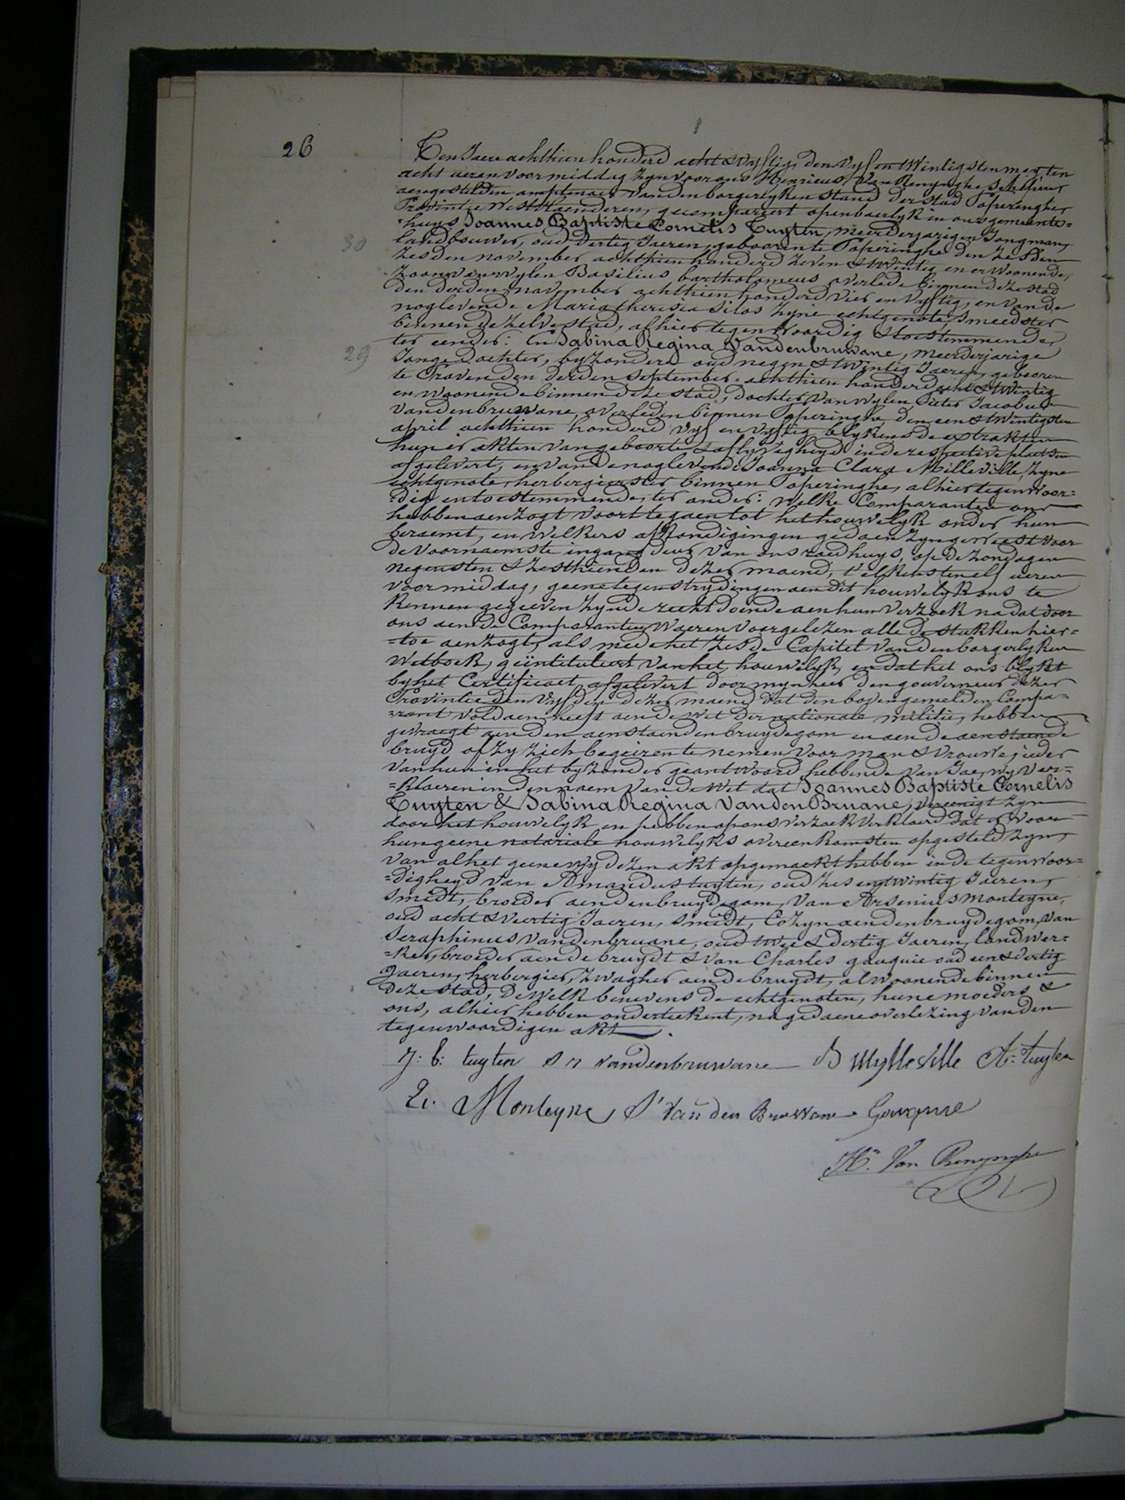 26
Ten Jaere achthien honderd acht & vyftig, den vyf en twintigsten meerten
acht ueren voormiddag zyn voor ons Henricus Van Renynghe, Schepen
aengestelden amptenaer van den borgerlyken stand der stad Poperinghe
Provintie Westvlaenderen, gecompareert openbaerlyk in ons gemeente-
huys Joannes Baptiste Cornelis Tuyten, meerderjarigen Jongman,
30
landbouwer, oud dertig Jaeren, geboren te Poperinghe den zesden
november achthien honderd zeven & twintig en er woonende,
Zoon van wylen Basilius bartholomeus overlede binnen deze stad
den derden november achthien honderd vier en vyftig, en van de
noglevende Maria theresia Silos zyne echtgenote, smeedster
binnen dezelve stad, alhier tegenwoordig & toestemmende
29
ter eender: En Sabina Regina Vandenbruwane, meerderjarige
Jonge dochter, byzondere oud negen & twintig Jaeren, geboren
te Proven den derden September achthien honderd acht & twintig
en woonende binnen deze stad, dochter van wylen Pieter Jacobus
Vandenbruwane, overleden binnen Poperinghe den een & twintigsten
april achthien honderd vyf en vyftig blykens de extrakten
hunner akten van geboorte & aflyvigheyd in de respective plaetsen
afgelevert, en van de noglevende Joanna Clara Milleville, zyne
echtgenote, herbergierster binnen Poperinghe, alhier tegenwoor-
dig en toestemmende, ter ander: Welke Comparanten ons
hebben aenzogt voort te gaen tot het houwelyk onder hun
beraemt, en welkers afkondigingen gedaen zyn geweest voor
de voornaemste ingang deur van ons radhuys, op de zondagen
negensten & zesthienden dezer maend, t'elkens ten elf ueren
voormiddag, geene tegenstrydingen aen dit houwelyk ons te
kennen gegeven zynde recht doende aen hun verzoek na dat door
ons aen de Comparanten waeren voorgelezen alle de stukken hier-
-toe aenzogt, als mede het zesde Capitel van den borgerlyken
Wetboek, geïntituleert, van het houwelyk, en dat het ons blykt
by het Certificaet afgelevert door mynheer den gouverneur dezer
Provintie den vyfden dezer maend dat den bovengemelden Compa-
-rant voldaen heeft aen de wet der nationale militie, hebben
gevraegt aen den aenstaenden bruydegom en aen de aenstaende
bruyd of zy zich begeiren te nemen voor man & vrouwe, ieder
van hun in het byzonder geantwoord hebbende van Jae, wy ver-
-klaeren in den naem van de wet dat Joannes Baptiste Cornelis
Tuyten & Sabina Regina VandenBruane, vereenigt zyn
door het houwelyk en hebben op ons verzoek verklaerd dat er voor
hun geene notariale houwelyks overeenkomsten opgesteld zyn,
van al het geene wy dezen akt opgemaekt hebben in de tegenwoor-
-digheyd van Amandus tuyten, oud zes en twintig Jaeren,
smidt, broeder aen den bruydegom, van Arsenius monteyne,
oud acht & veertig Jaeren, smidt, Cozyn aen den bruydegom, van
Seraphinus Vandenbruane, oud twee & dertig Jaeren, landwer-
-ker, broeder aen de bruydt & van Charles gauquie oud een & dertig
Jaeren, herbergier, zwagher aen de bruydt, al woonende binnen
deze stad, dewelk benevens de echtgenoten, hune moeders &
ons, alhier hebben onderteekent, na gedaene overlezing van den
tegenwoordigen akt.
J: b: tuyten S r vandenbruwane Mylleville A: tuyten
Monteyne, S' Van den Bruwane Gauquie
Hri Van Renynghe